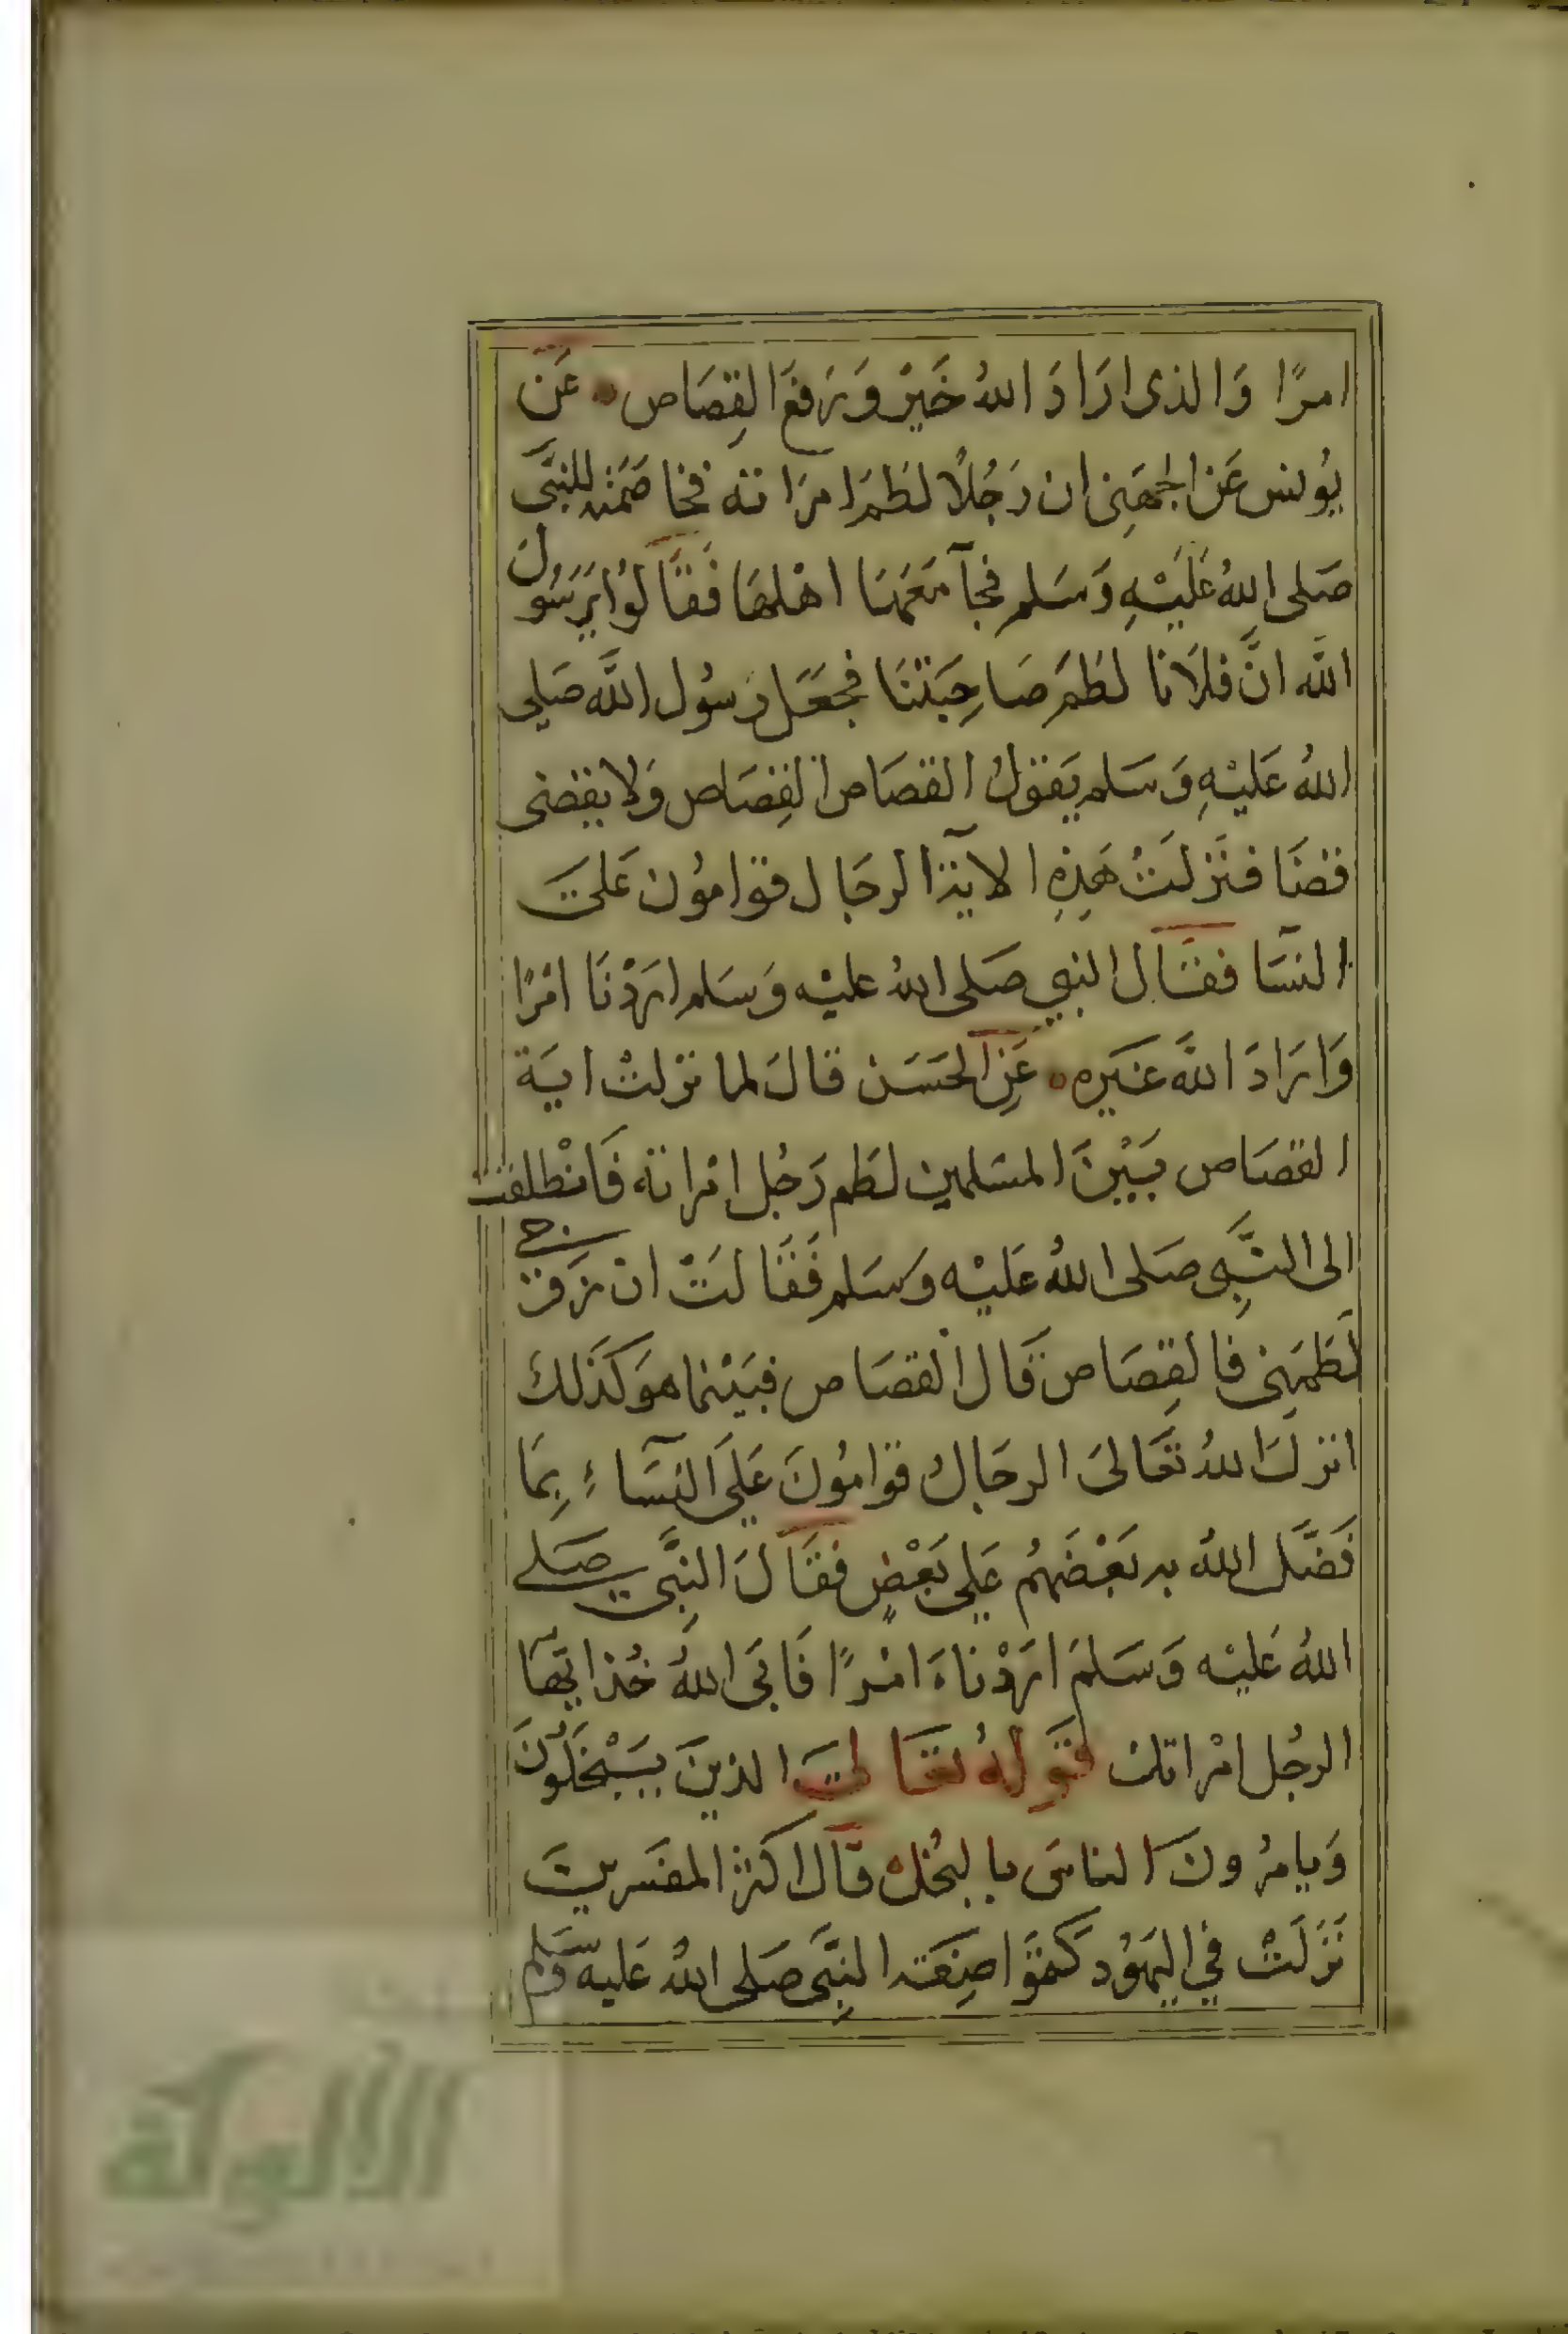 امرًا وَالذى ارَادَ اللهُ خَيْر وَرَفَعَ القِصَاص عَن
يُونس عَن الحسَن ان رَجُلًا لطَمَ امرَاته فخاصَمَته للنبَّى
صَلى اللهُ عَلَيْهِ وَسَلم فجآ مَعَهَا اهْلهَا فَقَالوُا يَرَسُولَ
الله انَّ فلَانا لطَمَ صَاحِبَتنَا فجَعَل رَسُول اللَّه صَلى
اللهُ عَليْهِ وَسَلم يَقوُلُ القصَاص القِصَاص وَلا يقضى
قضَا فنَزلَتْ هَذِهِ الاية الرجَال قوامُون عَلىَ
النسَا فقَال النبي صَلى اللهُ عليْه وَسَلم ارَدْنَا امْرًا
وَارَادَ اللَّه غيَره عَنِ الحَسَن قالَ لما نزلتْ ايَة
القصَاص بَيْنَ المسَلمين لطَم رَجُل امْراته فَانْطلقت
الى النَّبِى صَلى اللهُ عَليْه وَسَلم فَقَالَتْ ان زَوْجى
لَطَمَنِى فالقِصَاص قَال القصَاص فبَيْنما هوَ كَذَلكَ
انزلَ اللهُ تَعَالىَ الرجَالُ قوامُونَ عَلَى النسَآءِ بِمَا
فَضَّل اللهُ به بَعْضَهُم عَلى بَعْضٍ فقَالَ النبَّى صَلى
اللهُ عَليْه وَسَلمَ ارَدْناءَ امْرًا فَابَى اللهُ خُذ ايّهَا
الرجُل امْراتك قَولهُ تعَالىَ الذينَ يَبْخَلُونَ
وَيامرُونَ الناسَ بالبُخل قاَل اكثرُ المفسَرينَ
نَزَلَتْ في اليَهوُد كَتموَا صِفَة النبَّى صَلى اللهُ عَليه وَسَلم
الألوكة